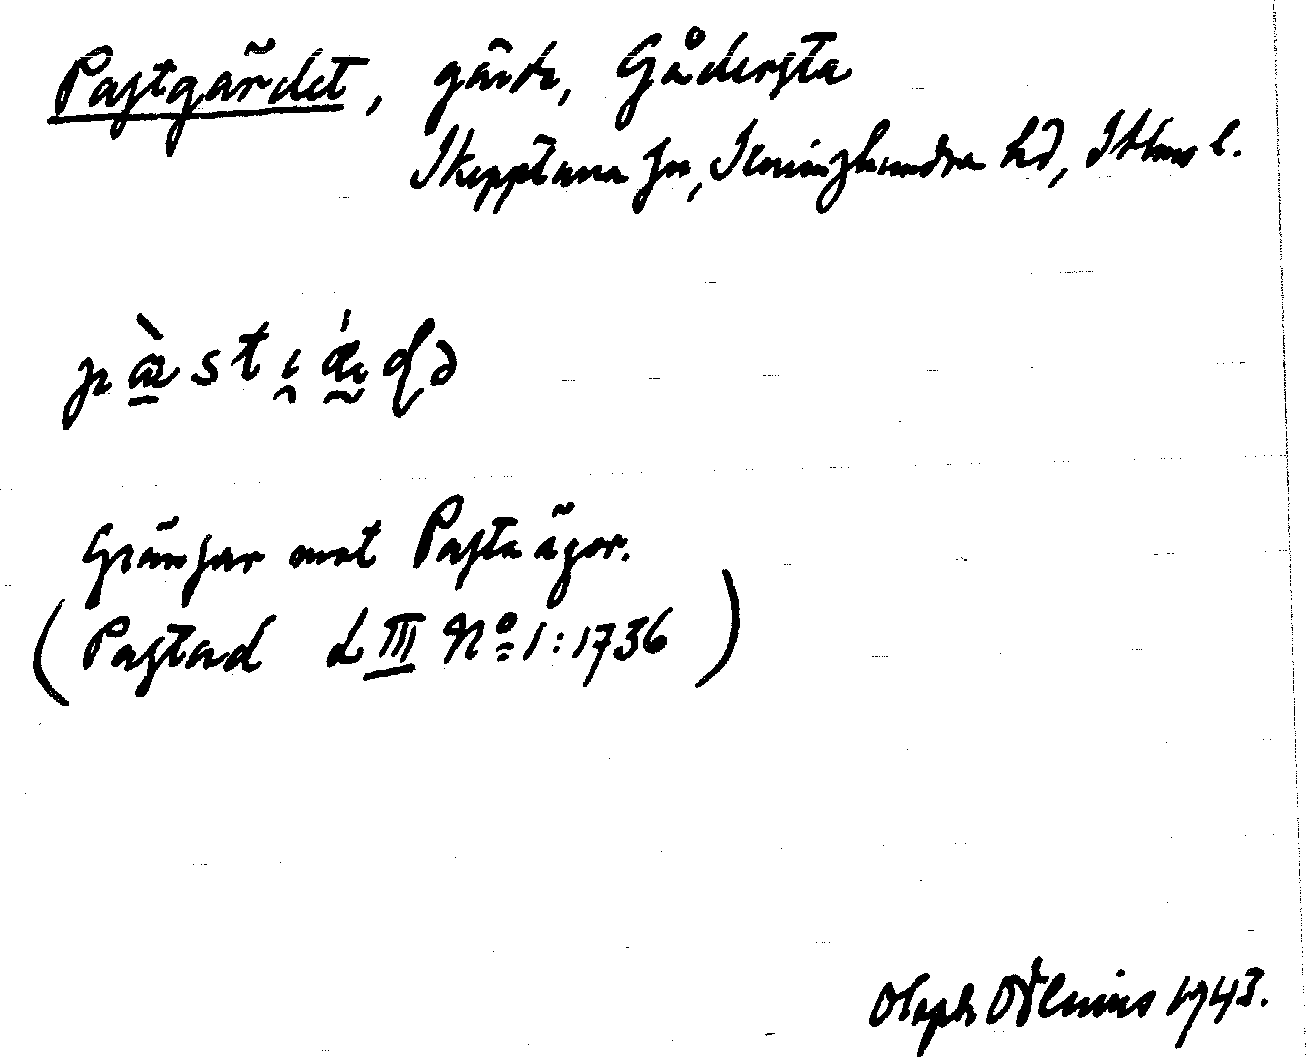 Pastgärdet, gärde, Gådersta
Skepptuna sn, Seminghundra hd, Sthms l.
Gränsar mot Pasta ägor.
(Pastad d III No 1:1736)
Oloph Odenius 1943.